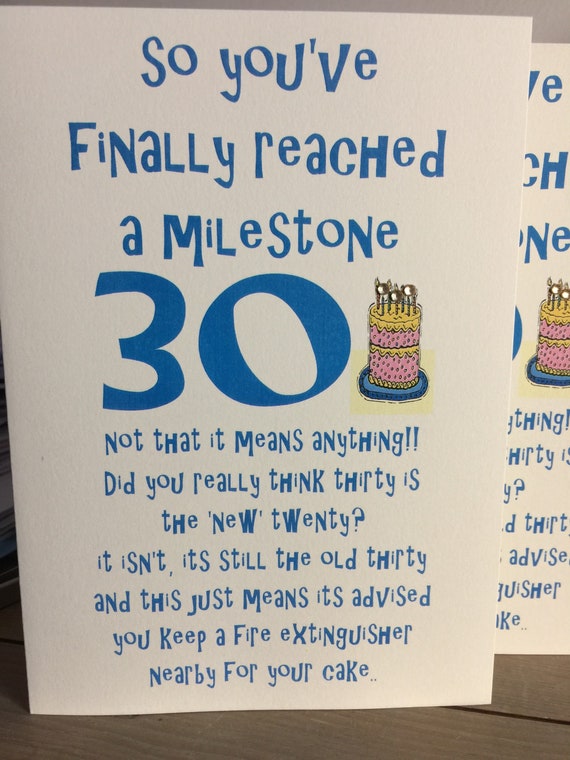 So you've
Finally reached
a Milestone
30
Not that it means anything!!
Did you really think thirty is
the 'new' twenty?
it isn't, its still the old thirty
and this just means its advised
you keep a fire extinguisher
nearby for your cake..
've
CH
ONE
ything!
hirty is
y?
d thirty
advise
guisher
ke..